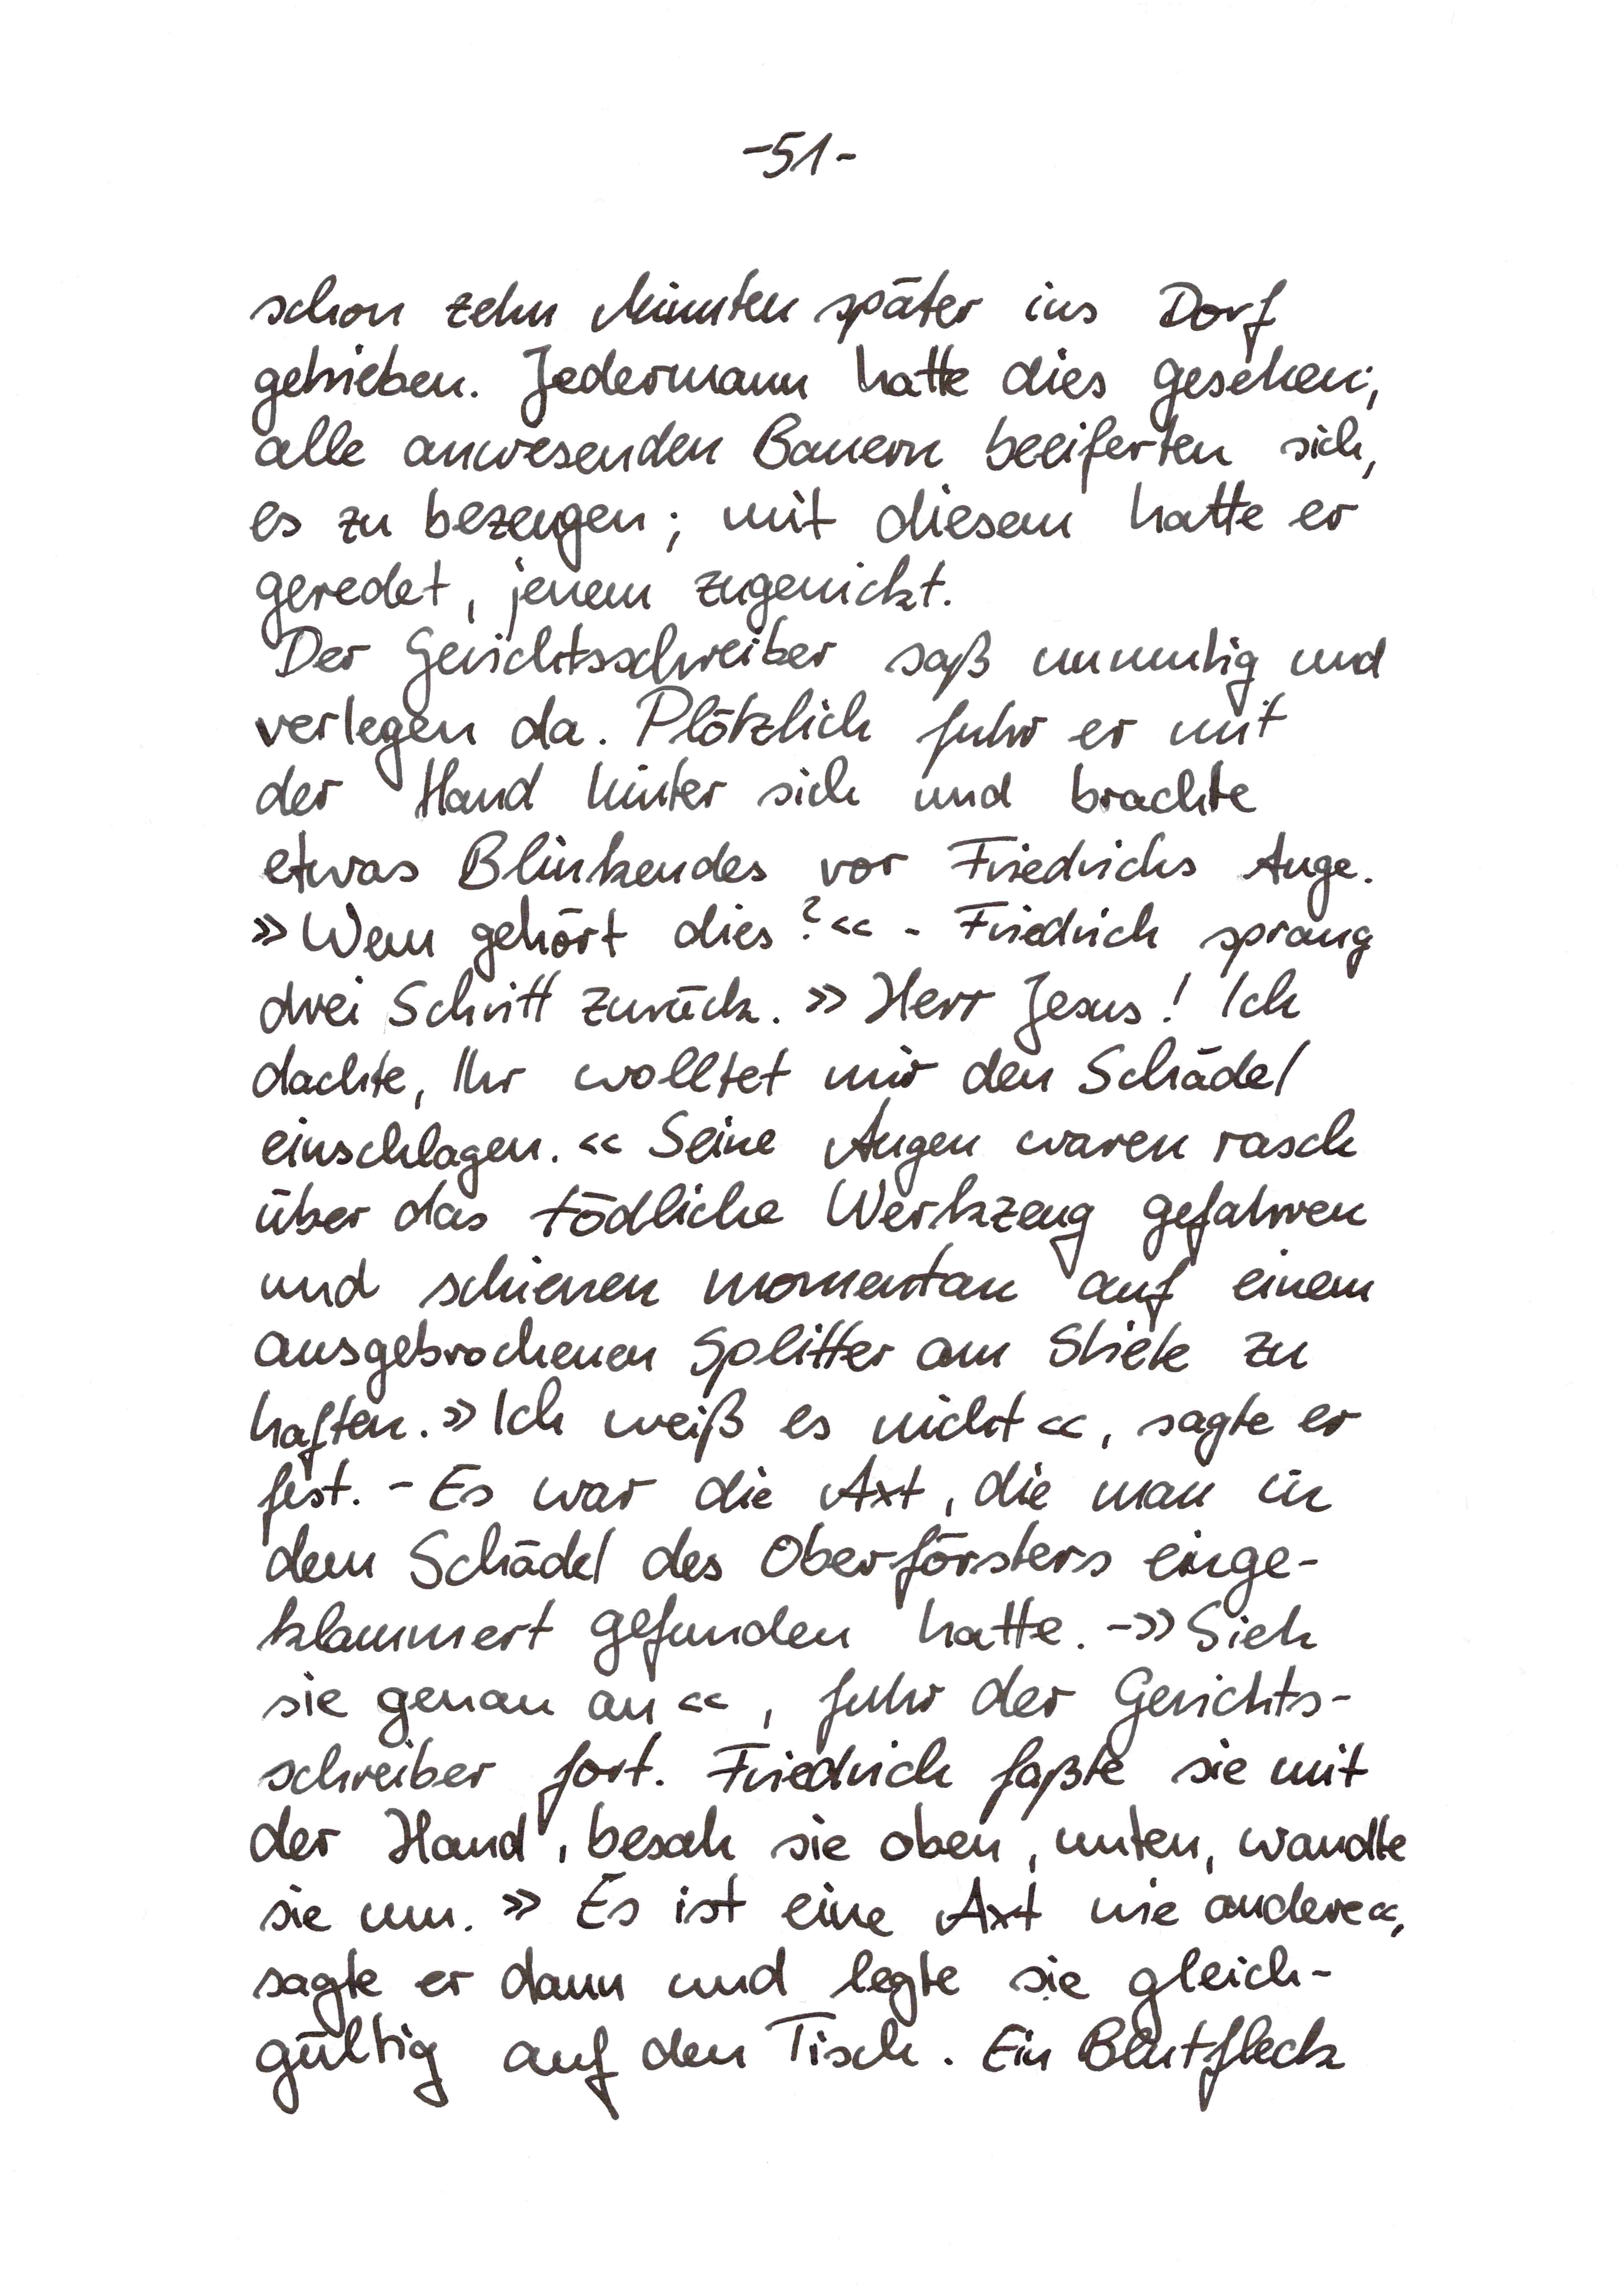 -51-
schon zehn Minuten später ins Dorf
getrieben. Jedermann hatte dies gesehen;
alle anwesenden Bauern beeiferten sich,
es zu bezeugen; mit diesem hatte er
geredet, jenem zugenickt.
Der Gerichtsschreiber saß unmutig und
verlegen da. Plötzlich fuhr er mit
der Hand hinter sich und brachte
etwas Blinkendes vor Friedrichs Auge.
»Wem gehört dies?« - Friedrich sprang
drei Schritt zurück. »Herr Jesus! Ich
dachte, Ihr wolltet mir den Schädel
einschlagen.« Seine Augen waren rasch
über das tödliche Werkzeug gefahren
und schienen momentan auf einem
ausgebrochenen Splitter am Stiele zu
haften. »Ich weiß es nicht«, sagte er
fest. - Es war die Axt, die man in
dem Schädel des Oberförsters einge-
klammert gefunden hatte. -»Sieh
sie genau an«, fuhr der Gerichts-
schreiber fort. Friedrich faßte sie mit
der Hand, besah sie oben, unten, wandte
sie um. »Es ist eine Axt wie andere«,
sagte er dann und legte sie gleich-
gültig auf den Tisch. Ein Blutfleck